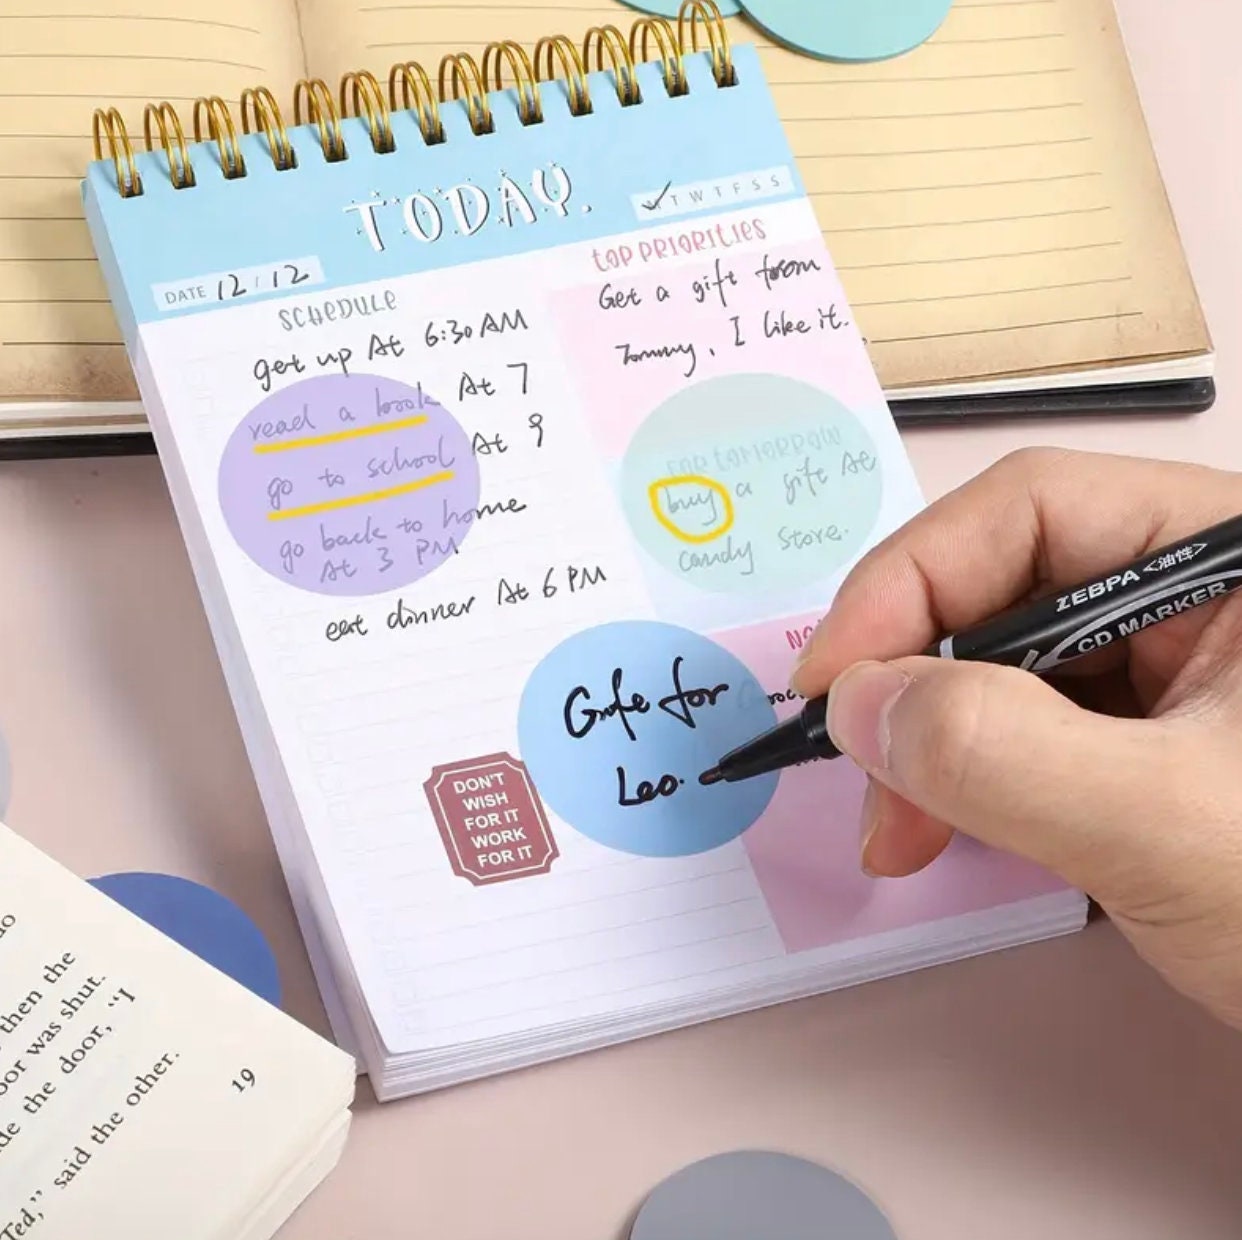 TODAY.
T W T F S S
DATE 12/12
SCHEDULE
get up At 6:30 AM
read a book At 7
go to school At 9
go back to home
At 3 PM
eat dinner At 6 PM
TOP PRIORITIES
Get a gift from
Tommy, I like it.
FOR TOMORROW
buy a gift At
candy store.
for
Leo.
DON'T
WISH
FOR IT
WORK
FOR IT
ZEBRA <油性>
CD MARKER
then the
was shut.
the door, "I
Ted," said the other.
19